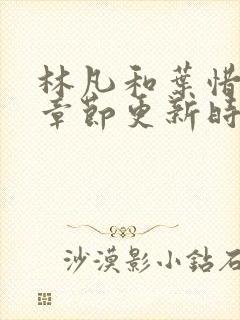 林凡和葉惜
章節更新時
沙漠影小鉆石